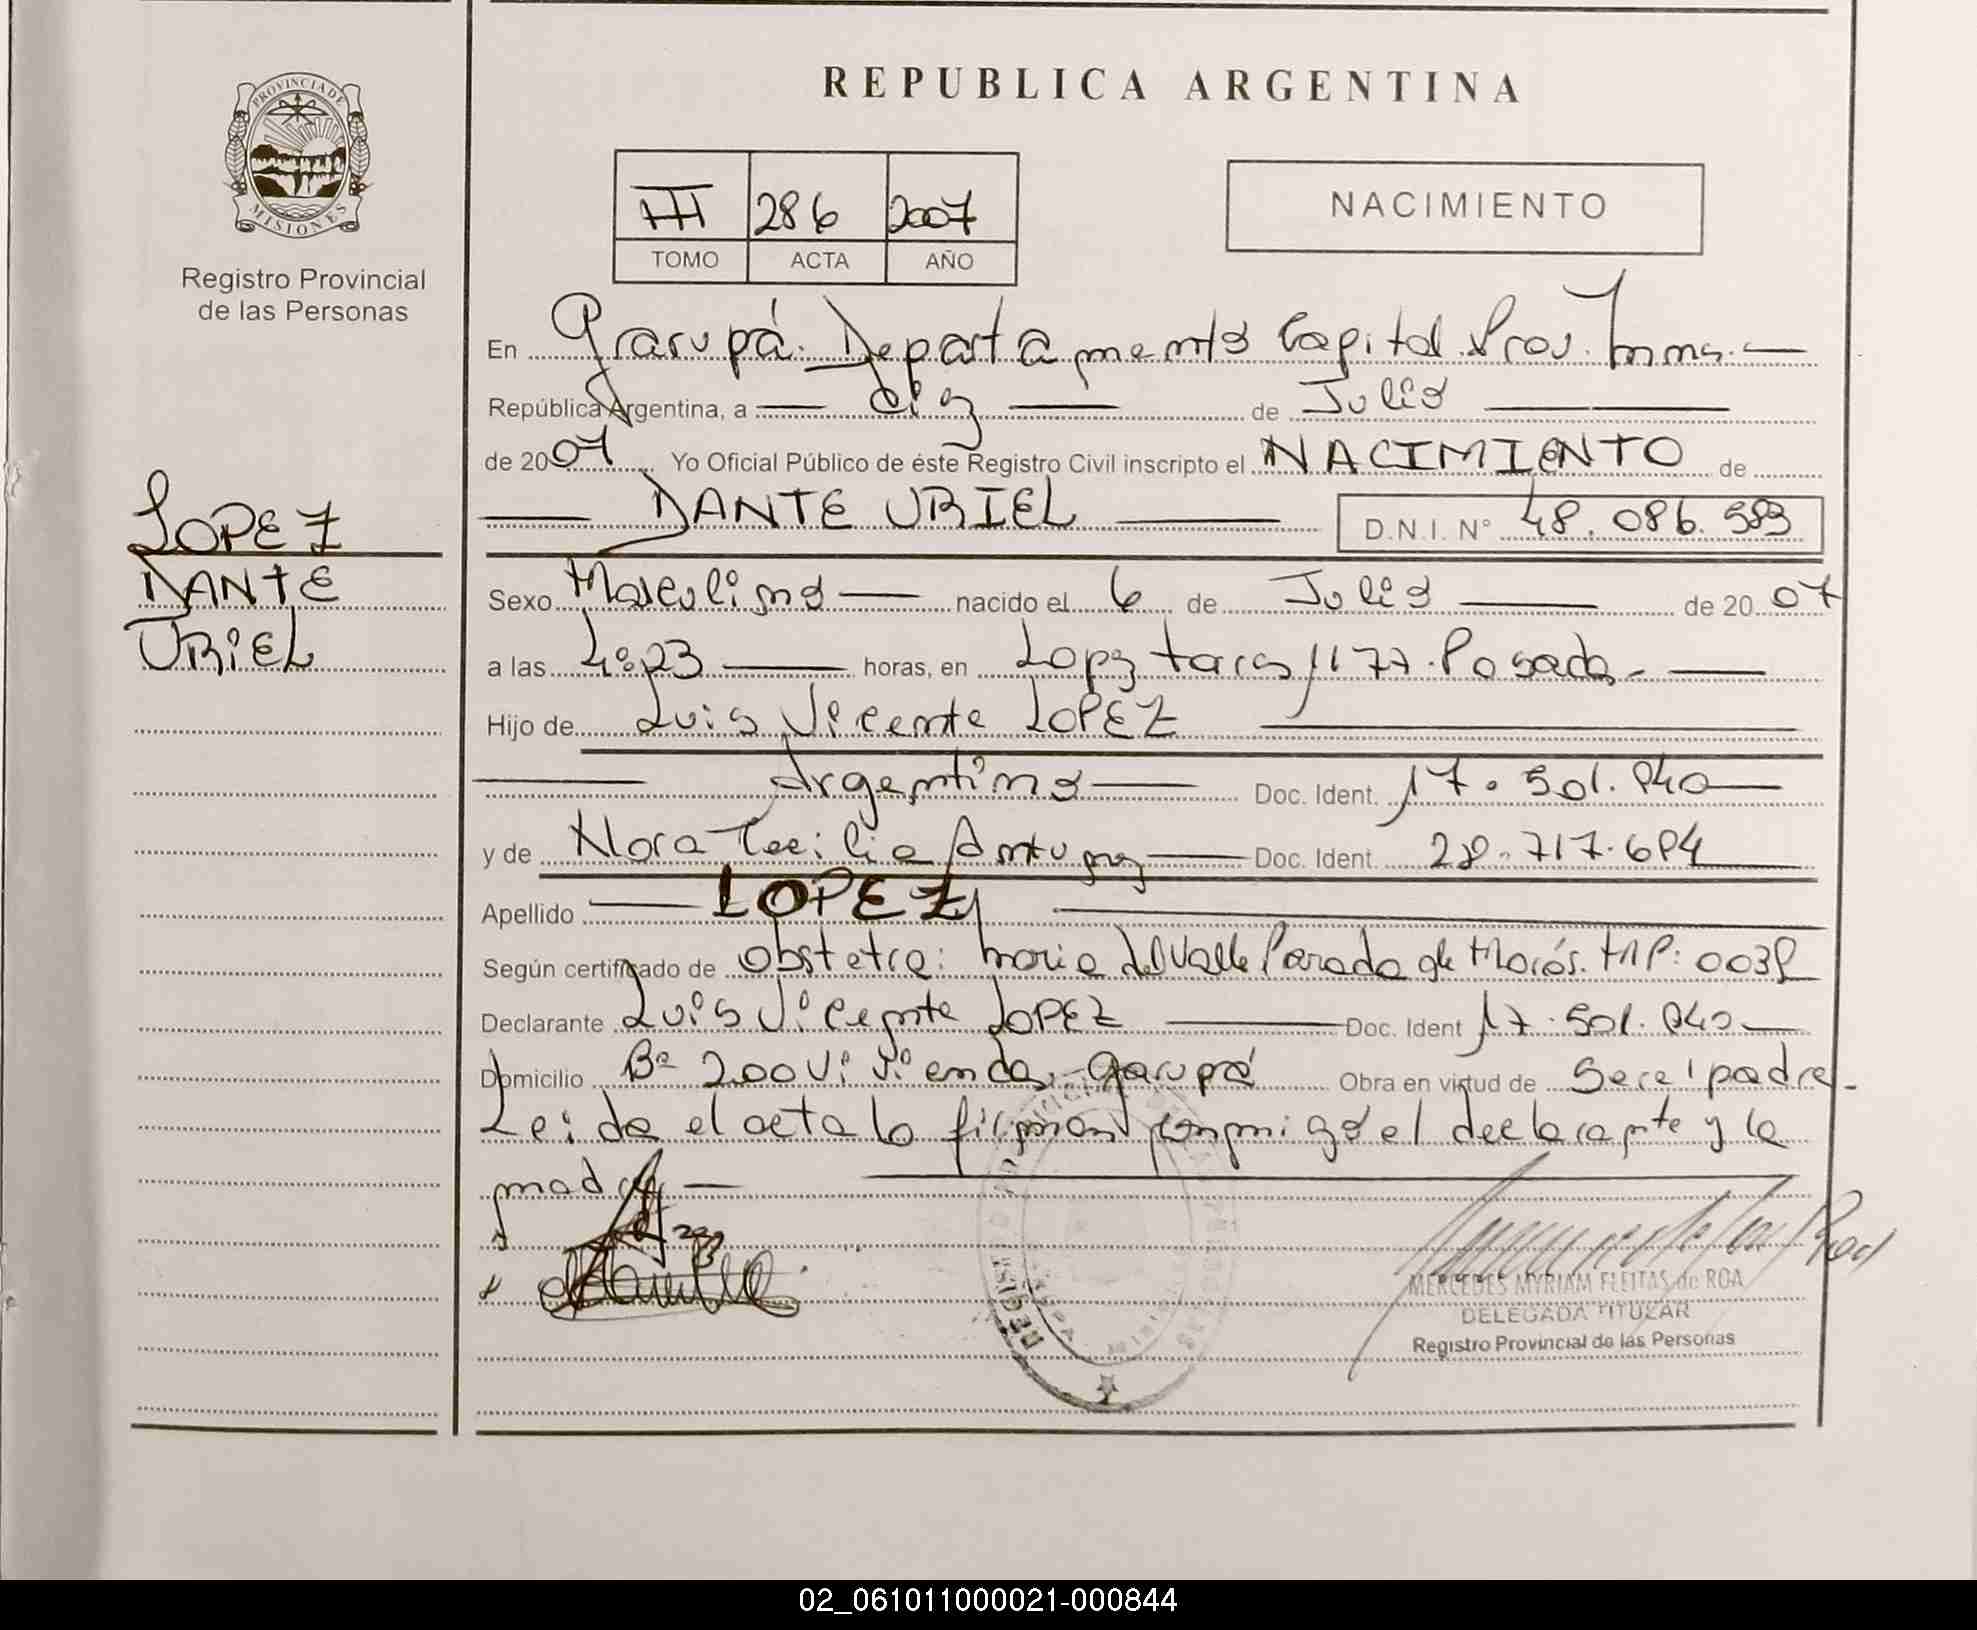 PROVINCIA DE
MISIONES
Registro Provincial
de las Personas
LOPEZ
DANTE
URIEL
REPUBLICA ARGENTINA
III 286 2007
TOMO ACTA AÑO
NACIMIENTO
En Garupá. Departamento Capital. Prov. Mnes.
República Argentina, a diez de Julio
de 2007 Yo Oficial Público de éste Registro Civil inscripto el NACIMIENTO de
DANTE URIEL D.N.I. N° 48.086.583
Sexo Masculino nacido el 6 de Julio de 2007
a las 4:23 horas, en Lopez Torres 1177. Posadas
Hijo de Luis Vicente LOPEZ
Argentino Doc. Ident. 17.501.840
y de Nora Cecilia Antunez Doc. Ident. 28.717.684
Apellido LOPEZ
Según certificado de Obstetra: Maria del Valle Parada de Marós. MP: 0038
Declarante Luis Vicente LOPEZ Doc. Ident 17.501.840
Domicilio B° 200 Viviendas - Garupá Obra en virtud de ser el padre
Leida el acta la firman conmigo el declarante y la
madre
MERCEDES MYRIAM FLEITAS de ROA
DELEGADA TITULAR
Registro Provincial de las Personas
02_061011000021-000844